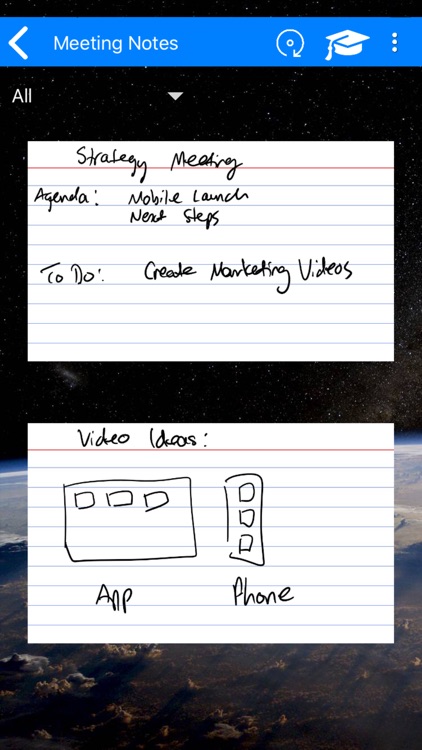 Meeting Notes
All
Strategy Meeting
Agenda: Mobile Launch
Next Steps
To Do: Create Marketing Videos
Video Ideas:
App Phone